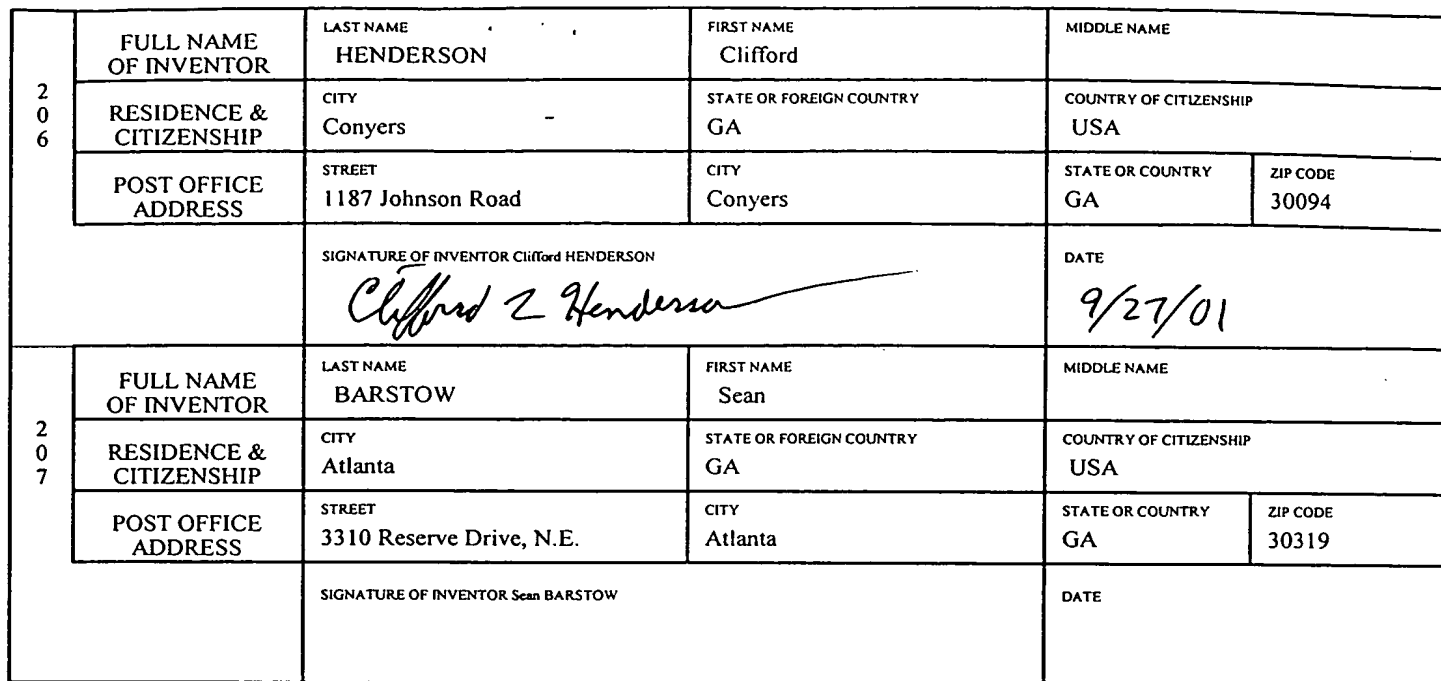 FULL NAME OF INVENTOR
LAST NAME
HENDERSON
FIRST NAME
Clifford
MIDDLE NAME
206
RESIDENCE & CITIZENSHIP
CITY
Conyers
STATE OR FOREIGN COUNTRY
GA
COUNTRY OF CITIZENSHIP
USA
POST OFFICE ADDRESS
STREET
1187 Johnson Road
CITY
Conyers
STATE OR COUNTRY
GA
ZIP CODE
30094
SIGNATURE OF INVENTOR Clifford HENDERSON
Clifford L Henderson
DATE
9/27/01
FULL NAME OF INVENTOR
LAST NAME
BARSTOW
FIRST NAME
Sean
MIDDLE NAME
207
RESIDENCE & CITIZENSHIP
CITY
Atlanta
STATE OR FOREIGN COUNTRY
GA
COUNTRY OF CITIZENSHIP
USA
POST OFFICE ADDRESS
STREET
3310 Reserve Drive, N.E.
CITY
Atlanta
STATE OR COUNTRY
GA
ZIP CODE
30319
SIGNATURE OF INVENTOR Sean BARSTOW
DATE